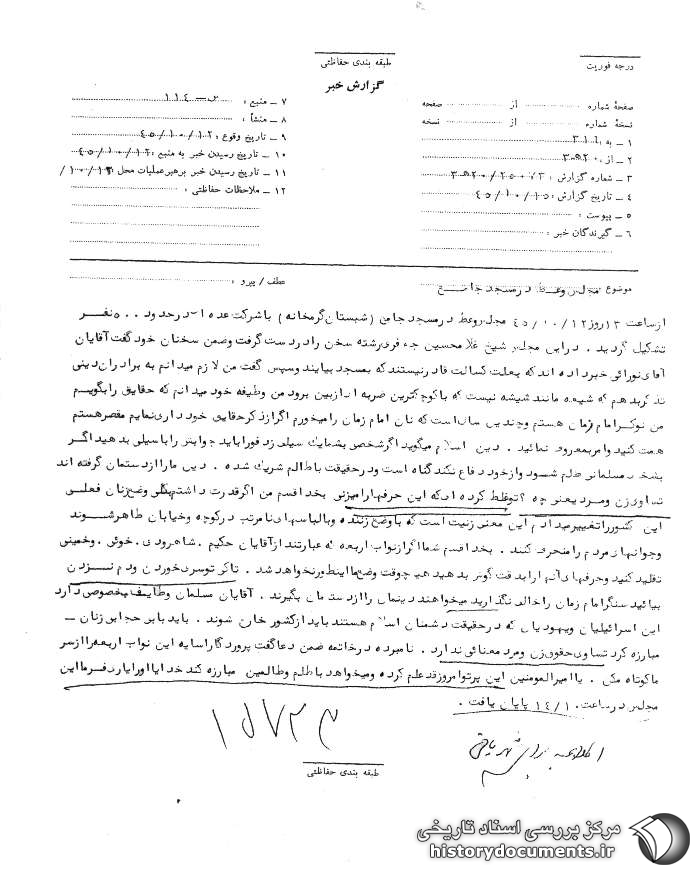 طبقه بندی حفاظتی
درجه فوریت
گزارش خبر
صفحهٔ شماره از صفحه
نسخهٔ شماره از نسخه
۱ ــ به : ۳۱۱
۲ ــ از :
۳ ــ شماره گزارش :
۴ ــ تاریخ گزارش : ۴۵/۱۰/۱۵
۵ ــ پیوست :
۶ ــ گیرندگان خبر :
۷ ــ منبع : س ــ ۱۱۴
۸ ــ منشأ :
۹ ــ تاریخ وقوع : ۴۵/۱۰/۱۲
۱۰ ــ تاریخ رسیدن خبر به منبع : ۴۵/۱۰/۱۲
۱۱ ــ تاریخ رسیدن خبر برهبر عملیات محل
۱۲ ــ ملاحظات حفاظتی :
موضوع : مجلس وعظ در مسجد جامع
عطف / پیرو :
از ساعت ۱۳ روز ۴۵/۱۰/۱۲ مجلس وعظ در مسجد جامع (شبستان گرمخانه) با شرکت عده ای در حدود ۵۰۰ نفر
تشکیل گردید . در این مجلس شیخ غلامحسین جعفری رشته سخن را در دست گرفت و ضمن سخنان خود گفت آقایان
آقای نورائی خبر داده اند که بعلت کسالت قادر نیستند که بمسجد بیایند وسپس گفت من لازم میدانم به برادران دینی
تذکر بدهم که شیعه مانند شیشه نیست که با کوچکترین ضربه ای از بین برود من وظیفه خود میدانم که حقایق را بگویم
من نوکر امام زمان هستم و چندین سال است که نان امام زمان را میخورم اگر از ذکر حقایق خود داری نمایم مقصر هستم
همت کنید و امر بمعروف نمائید . دین اسلام میگوید اگر شخصی بشما یک سیلی زد فورا باید جوابش را با سیلی بدهید اگر
بشخص مسلمانی ظلم شود و از خود دفاع نکند گناه است و در حقیقت با ظالم شریک شده . دین ما را از دستمان گرفته اند
تساوی زن و مرد یعنی چه ؟ تو غلط کرده ای که این حرفها را میزنی بخدا قسم من اگر قدرت داشتم وضع زنان فعلی
این کشور را تغییر میدادم این معنی زنیت است که با وضع زننده و با لباسهای نامرتب در کوچه و خیابان ظاهر شوند
و جوانهای مردم را منحرف کنند . بخدا قسم شما اگر از نواب اربعه که عبارتند از آقایان حکیم . شاهرودی . خوئی . و خمینی
تقلید کنید و حرفهای آنها را بدقت گوش بدهید هیچوقت وضع ما اینطور نخواهد شد . تا کی توسری خوردن و دم نزدن
بیائید سنگر امام زمان را خالی نگذارید میخواهند دینمان را از دستمان بگیرند . آقایان مسلمان وظایف بخصوصی دارد
این اسرائیلیان و یهودیان که در حقیقت دشمنان اسلام هستند باید از کشور خارج شوند . باید با بی حجابی زنان ــ
مبارزه کرد تساوی حقوق زن و مرد معنائی ندارد . نامبرده در خاتمه ضمن دعا گفت پروردگارا سایه این نواب اربعه را از سر
ما کوتاه مکن . یا امیرالمومنین این پرتو امروز قد علم کرده و میخواهد با ظلم و ظالمین مبارزه کند خدایا او را یاری فرما این
مجلس در ساعت ۱۴/۱۰ پایان یافت .
طبقه بندی حفاظتی
مرکز بررسی اسناد تاریخی
historydocuments.ir